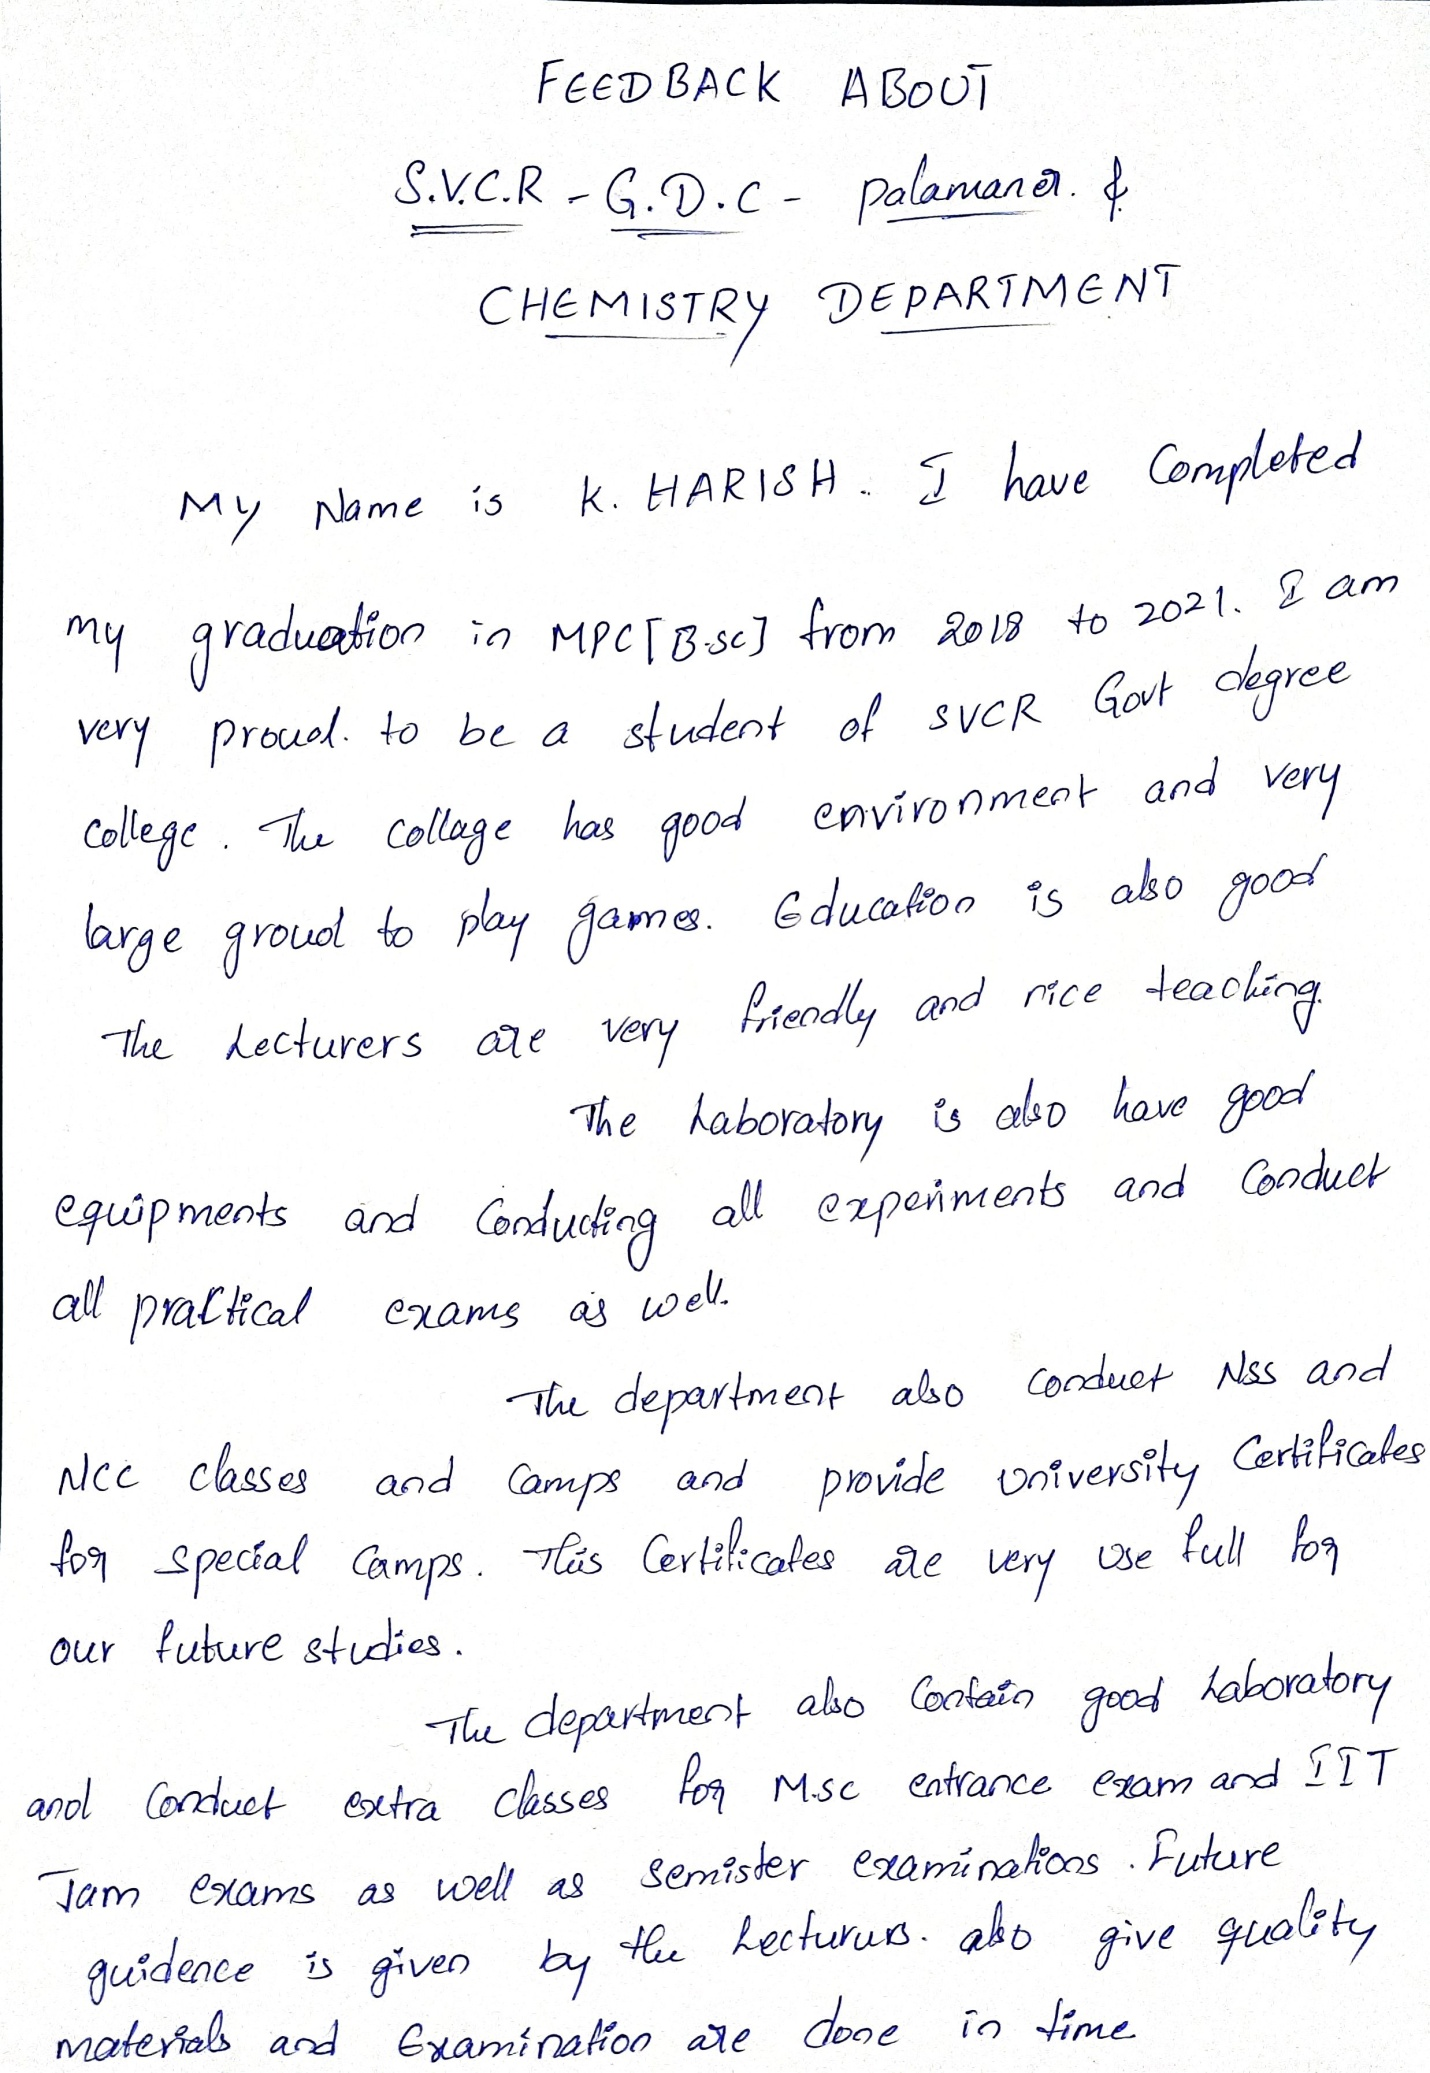 FEEDBACK ABOUT
S.V.C.R - G.D.C - palamaner. &
CHEMISTRY DEPARTMENT
My Name is K. HARISH. I have Completed
my graduation in MPC[B.sc] from 2018 to 2021. I am
very proud. to be a student of SVCR Govt degree
college. The collage has good environment and very
large groud to play games. Education is also good
The Lecturers are very friendly and nice teaching.
The Laboratory is also have good
equipments and Conducting all experiments and Conduct
all practical exams as well.
The department also conduct Nss and
NCC classes and Camps and provide University Certificates
for special Camps. This Certificates are very use full for
our future studies.
The department also Contain good Laboratory
and Conduct extra classes for M.sc entrance exam and IIT
Jam exams as well as semister examinations. Future
guidence is given by the Lectururs. also give quality
materials and Examination are done in time